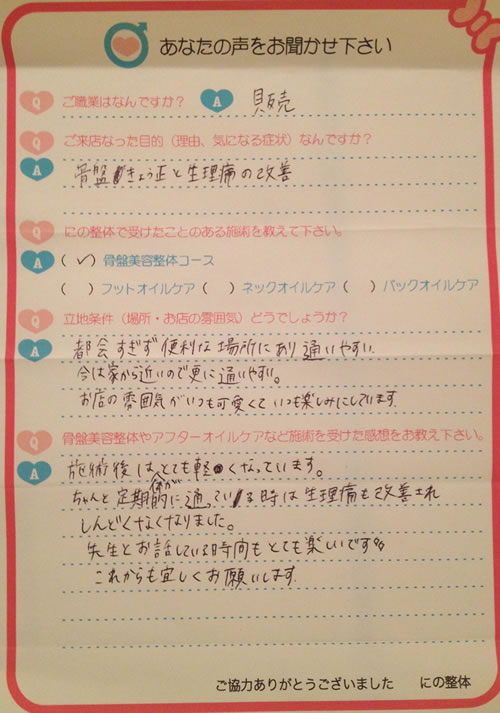 あなたの声をお聞かせ下さい
Q ご職業はなんですか? A 販売
Q ご来店なった目的(理由、気になる症状)なんですか?
A 骨盤きょう正と生理痛の改善
Q にの整体で受けたことのある施術を教えて下さい。
A (✓)骨盤美容整体コース
( )フットオイルケア( )ネックオイルケア( )バックオイルケア
Q 立地条件(場所・お店の雰囲気)どうでしょうか?
A 都会すぎず便利な場所にあり通いやすい。
今は家から近いので更に通いやすい。
お店の雰囲気がいつも可愛くていつも楽しみにしています。
Q 骨盤美容整体やアフターオイルケアなど施術を受けた感想をお教え下さい。
A 施術後は体がとても軽くなっています。
ちゃんと定期的に通っている時は生理痛も改善され
しんどくなくなりました。
先生とお話している時間もとても楽しいです
これからも宜しくお願いします。
ご協力ありがとうございました にの整体